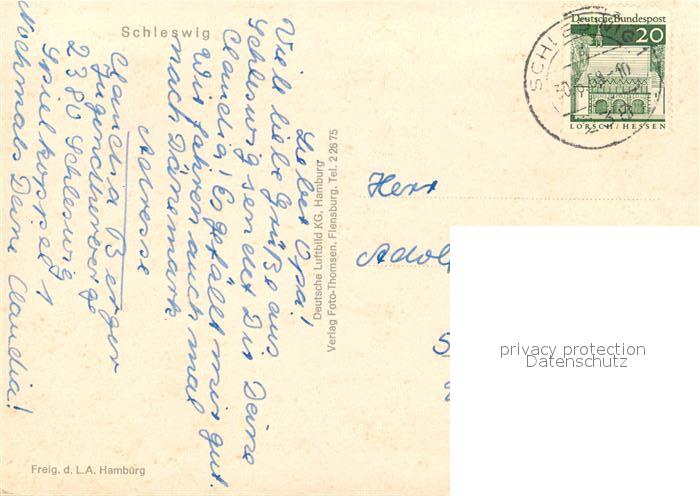 Schleswig
Lieber Opa!
Viele liebe Grüße aus
Schleswig sendet Dir Deine
Claudia! Es gefällt mir gut.
Wir fahren auch mal
nach Dänemark
Adresse
Claudia Berger
Jugendherberge
2380 Schleswig
Spielkoppel 1
Nochmals Deine Claudia!
Freig. d. L.A. Hamburg
Deutsche Luftbild KG, Hamburg
Verlag Foto-Thomsen, Flensburg, Tel. 2 26 75
Deutsche Bundespost
20
LORSCH/HESSEN
SCHLESWIG
Herr
Adol
privacy protection
Datenschutz